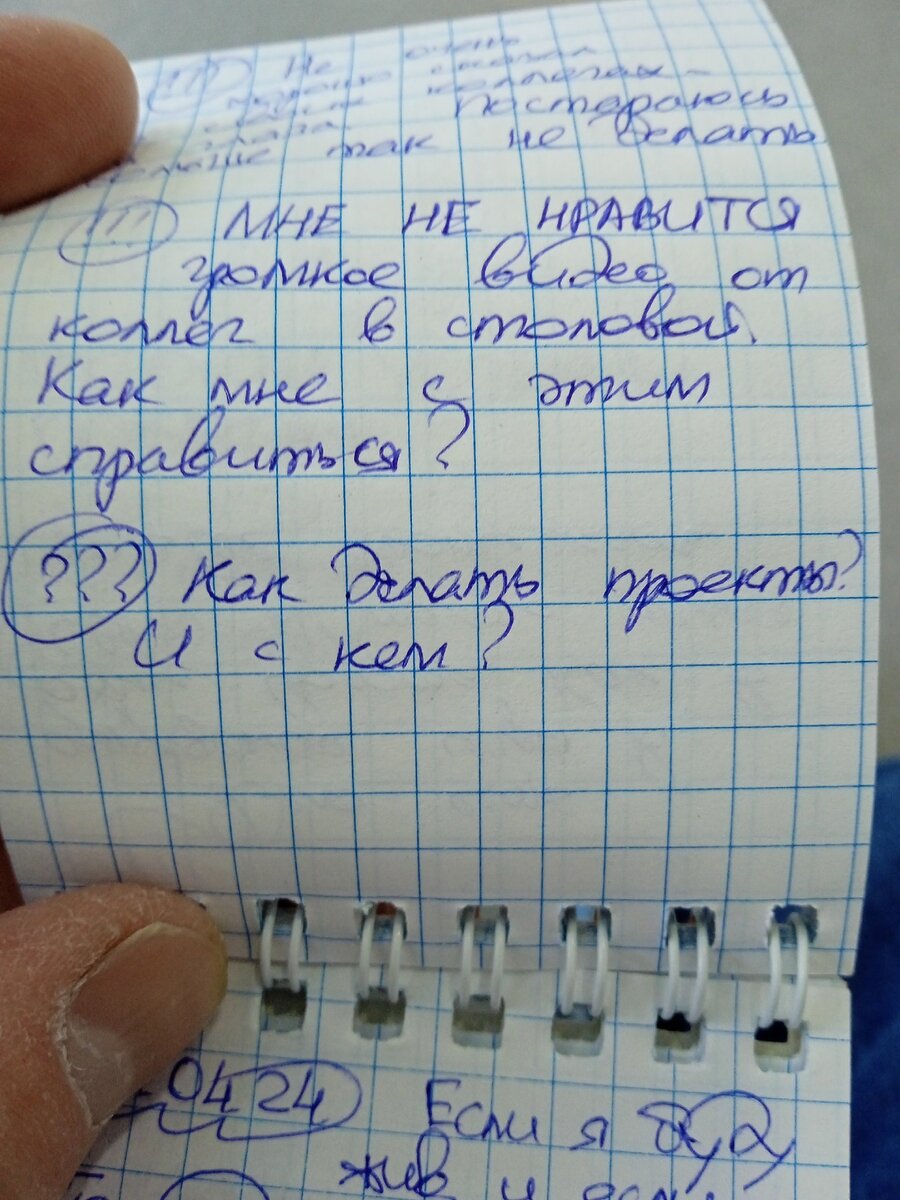 !!! Не очень
хорошо сказал
коллегах -
глаза. постараюсь
больше так не делать
!!! МНЕ НЕ НРАВИТСЯ
громкое видео от
коллег в столовой.
Как мне с этим
справиться?
??? Как делать проекты?
И с кем?
0424 Если я буду
жив и если